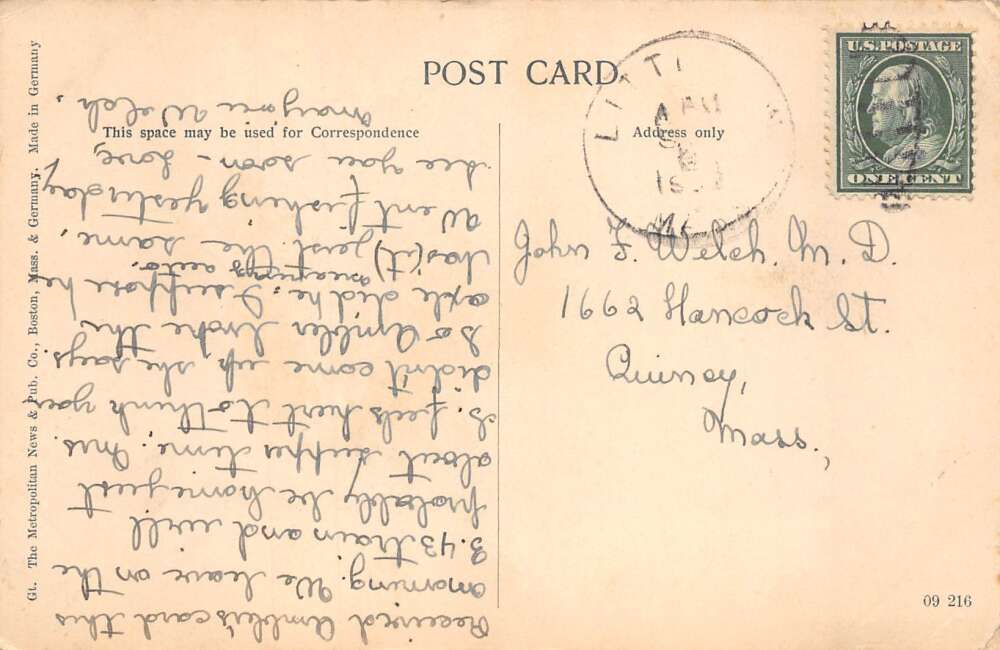 POST CARD
This space may be used for Correspondence
Address only
U.S. POSTAGE
ONE CENT
John F. Welch. M. D.
1662 Hancock St.
Quincy,
Mass.,
Received Ambler's card this
morning. We leave on the
3.43 train and will
probably be home just
about supper time. Mrs.
S. feels hurt to think you
didn't come up she says
So Ambler broke the
axle did he. I suppose he
was (it) just the same.
auto.
Went fishing yesturday
See you soon - Love,
Welch.
Gt. The Metropolitan News & Pub. Co., Boston, Mass. & Germany. Made in Germany
09 216